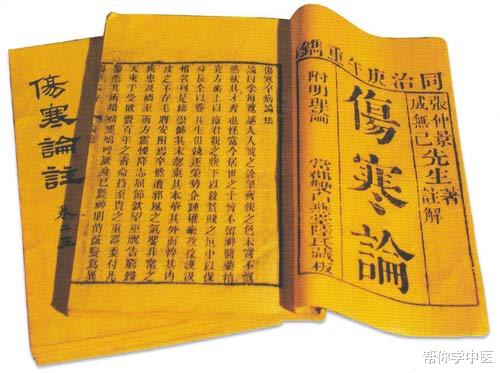 同治庚午重鐫
張仲景
成無己
先生
著
註解
傷寒論
附明理論
常郡雙白燕堂陸氏藏板
傷寒卒病論集
論曰余每覽越人入虢之診望齊侯之色未嘗不慨
然歎其才秀也怪當今居世之士曾不留神醫藥精
究方術上以療君親之疾下以救貧賤之厄中以保
身長全以養其生但競逐榮勢企踵權豪孜孜汲汲
惟名利是務崇飾其末忽棄其本華其外而悴其內
皮之不存毛將安附焉卒然遭邪風之氣嬰非常之
疾患及禍至而方震慄降志屈節欽望巫祝告窮歸
天束手受敗賫百年之壽命持至貴之重器委付凡
醫恣其所措咄嗟嗚呼厥身已斃神明消滅變為異
傷寒論註
卷二三
帮你学中医